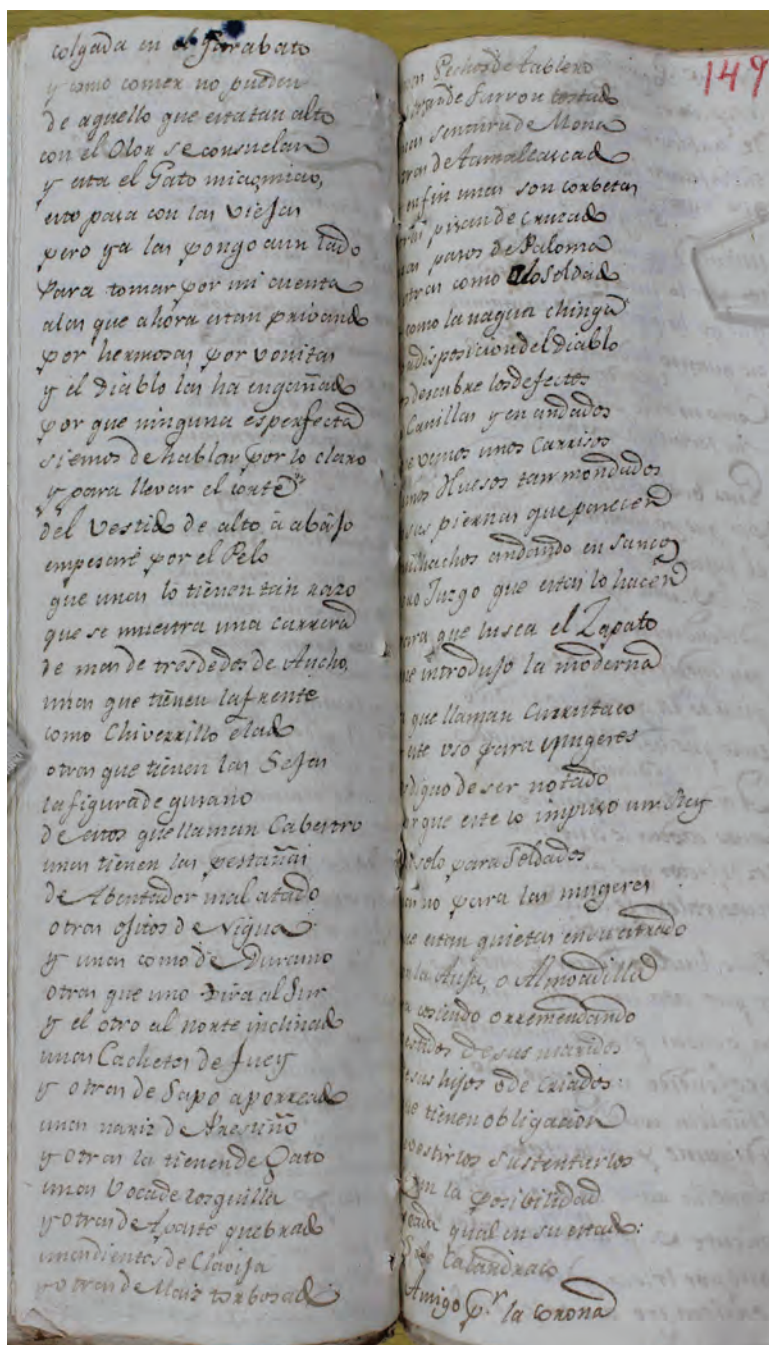 colgada en el Garabato
y como comer no pueden
de aquello que esta tan alto
con el Olor se consuelan
y esta el Gato miaomiao,
esto pasa con las Viejas
pero ya las pongo aun lado
Para tomar por mi cuenta
alas que ahora estan privando
por hermosas por vonitas
y el diablo las ha engañado
por que ninguna esperfecta
siemos de hablar por lo claro
y para llevar el corte
del Vestido de alto, á abajo
empesaré por el Pelo
que unas lo tienen tan razo
que se muestra una carrera
de mas de tresdedos de Ancho,
unas que tienen lafrente
como Chiverrillo elado
otras que tienen las Sejas
lafigura de gusano
De estos quellaman Cabestro
unas tienen las pestañas
de Abentador mal atado
otras ojitos de Nigua
y unas como de Durano
otras que uno mira al Sur
y el otro al norte inclinado
unas Cachetes de Juey
y otras de Sapo aporreado
unas nariz de
y otras la tienen de Gato
unas Vocade rosquilla
y otras de Aparte quebrado
unasdientes de Clavija
y otras de Maiz
149
Pechos de tablero
otras de Surron tostado
sentura de Mona
otras de
enfin unas son corbetas
pisan de cruzado
pasos de Paloma
otras como Soldado
como la nagua chinga
disposicion del diablo
descubre losdefectos
Canillas y en andados
vemos unos Carrisos
unos Huesos tan mondados
sus piernas que parecen
muchachos andando en Sancos
Juzgo que estas lo hacen
para que lusca el Zapato
que introdujo la moderna
que llaman Currutaco
este uso para mugeres
digno de ser notado
porque este lo impuso un Rey
solo para Soldados
no para las mugeres
que estan quietas en su estrado
la Auja, o Almoadilla
cosiendo o rremendando
vestidos desus maridos
sus hijos o de criados:
que tienen obligacion
vestirlos Sustentarlos
la posibilidad
cada qual en su estado:
Calandraco
Amigo p.r la corona